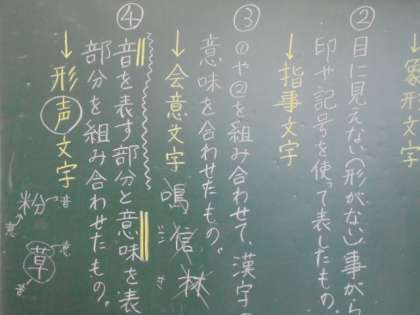 象形文字
② 目に見えない（形がない）事がら
印や記号を使って表したもの。
→指事文字
③ ①や②を組み合わせて、漢字の
意味を合わせたもの。
→会意文字 鳴 信 林
④ 音を表す部分と意味を表
部分を組み合わせたもの。
→形声文字
粉 音 意
草 音 意